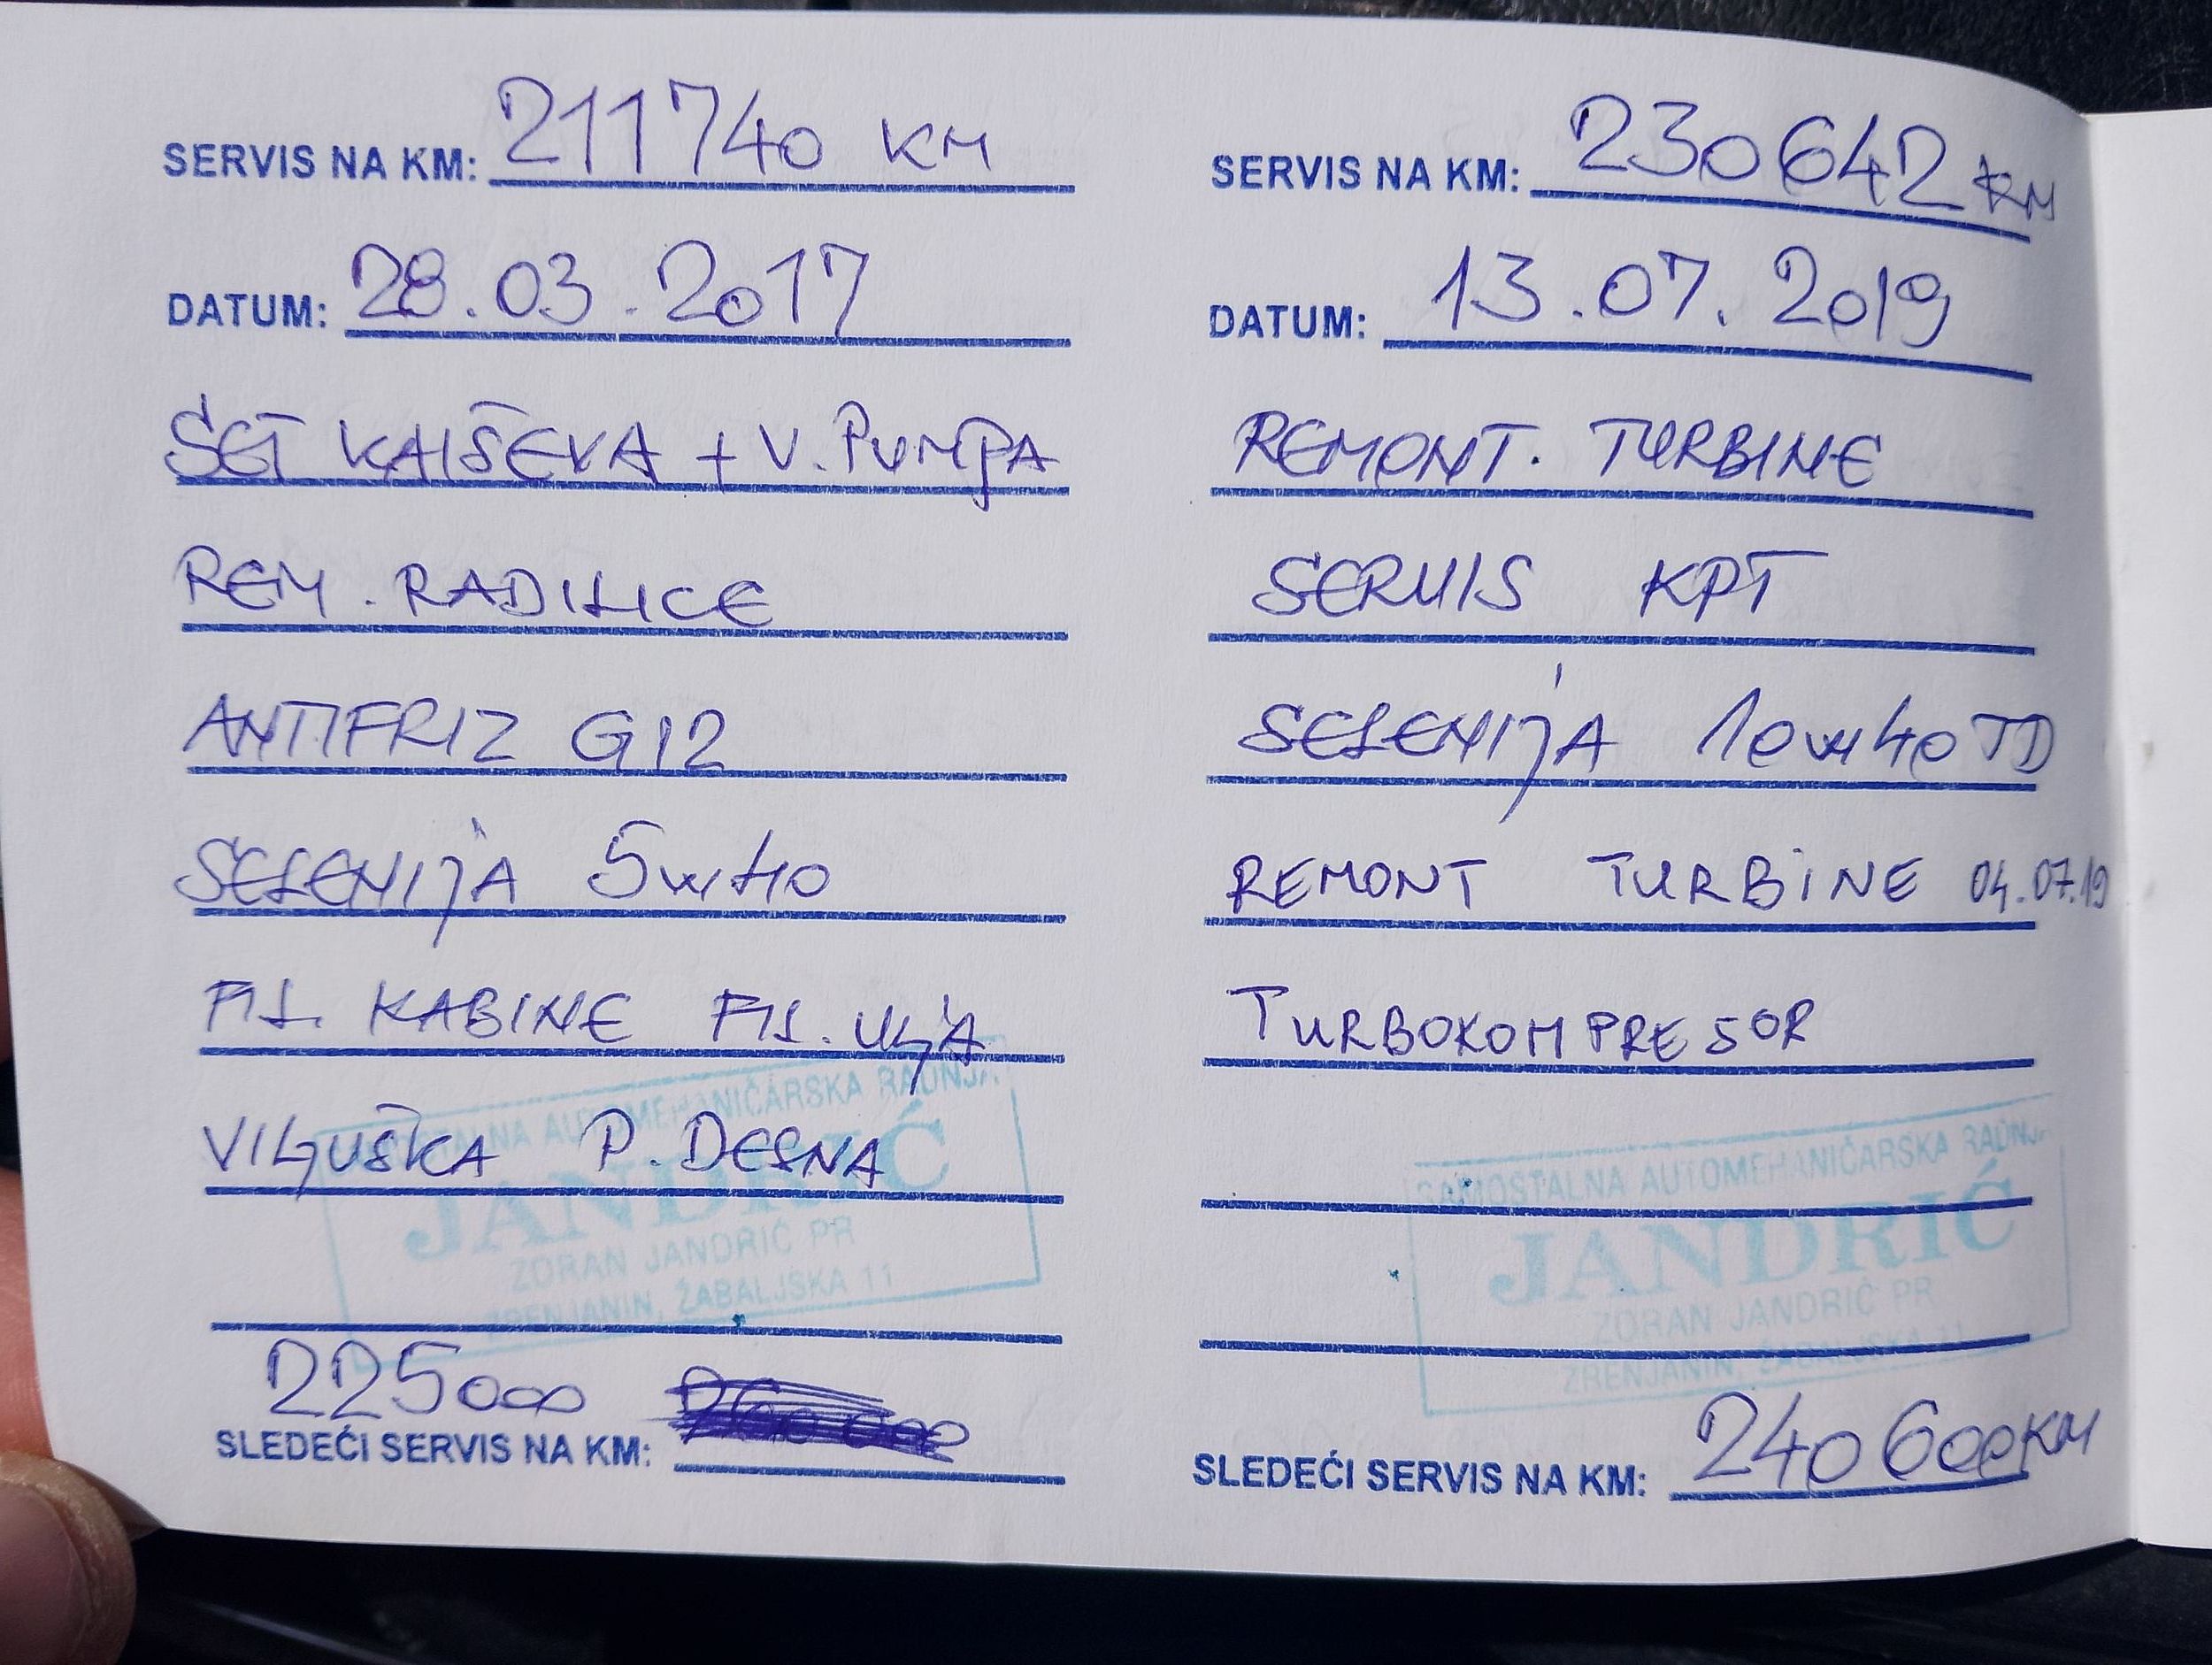 SERVIS NA KM: 211740 KM
DATUM: 28.03.2017
SET KAIŠEVA + V. PUMPA
REM. RADILICE
ANTIFRIZ G12
SELENIJA 5W40
FIL. KABINE FIL. ULJA
VILJUŠKA P. DESNA
SAMOSTALNA AUTOMEHANIČARSKA RADNJA
JANDRIĆ
ZORAN JANDRIĆ PR
ZRENJANIN, ŽABALJSKA 11
225000
SLEDEĆI SERVIS NA KM:
SERVIS NA KM: 230642 KM
DATUM: 13.07.2019
REMONT. TURBINE
SERVIS KPT
SELENIJA 10W40 TD
REMONT TURBINE 04.07.19
TURBOKOMPRESOR
SAMOSTALNA AUTOMEHANIČARSKA RADNJA
JANDRIĆ
ZORAN JANDRIĆ PR
ZRENJANIN, ŽABALJSKA 11
SLEDEĆI SERVIS NA KM: 240600 KM